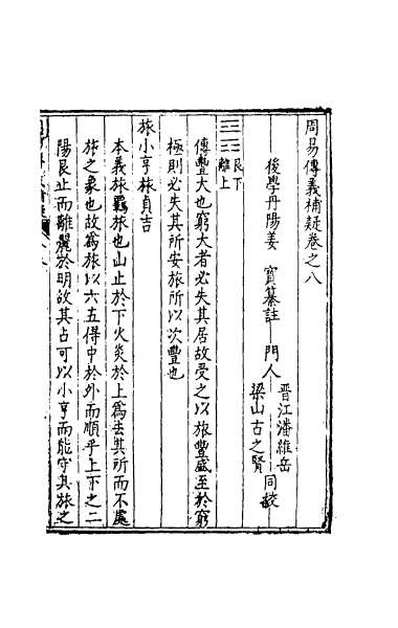 周易傳義補疑卷之八
後學丹陽姜 寶纂註 門人 晋江潘維岳 梁山古之賢 同校
艮下 離上
傳豐大也窮大者必失其居故受之以旅豐盛至於窮
極則必失其所安旅所以次豐也
旅小亨旅貞吉
本義旅羈旅也山止於下火炎於上爲去其所而不處
旅之象也故爲旅以六五得中於外而順乎上下之二
陽艮止而離麗於明故其占可以小亨而能守其旅之